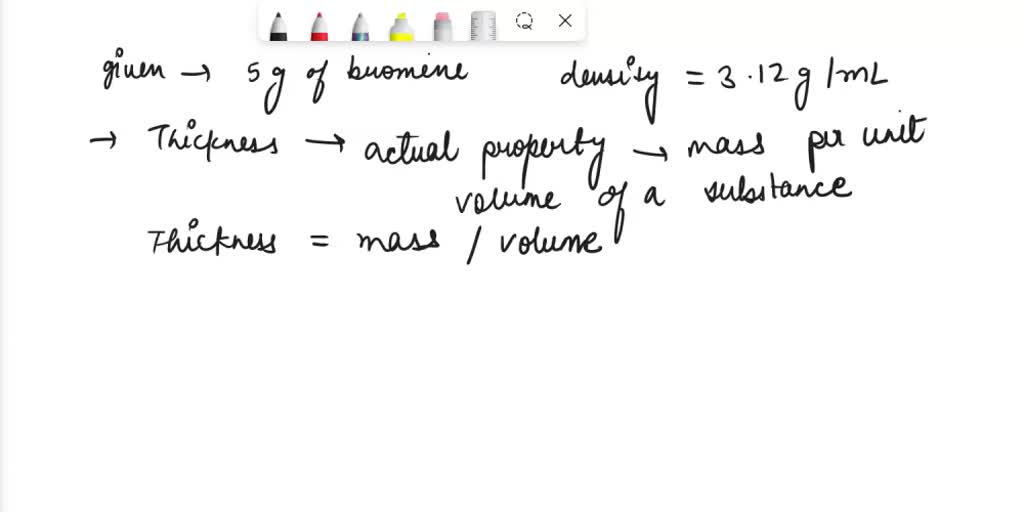 given → 5g of bromine density = 3.12g/mL
→ Thickness → actual property → mass per unit
volume of a substance
Thickness = mass / volume